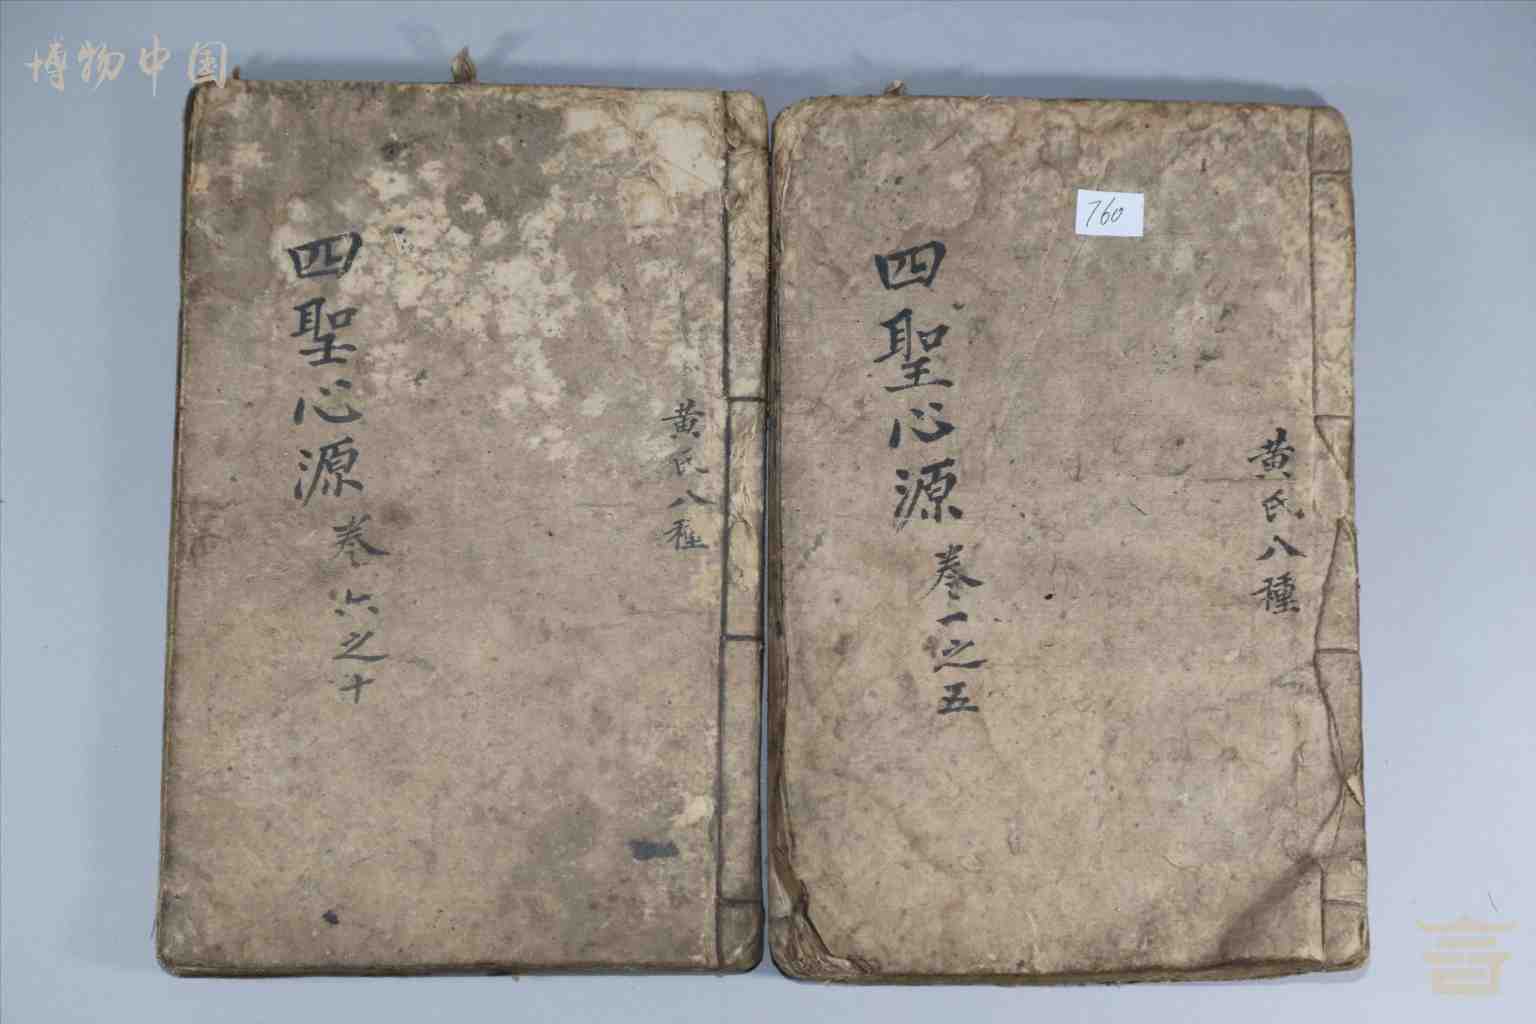 博物中国
四聖心源
卷六之十
黄氏八種
760
四聖心源
卷一之五
黄氏八種